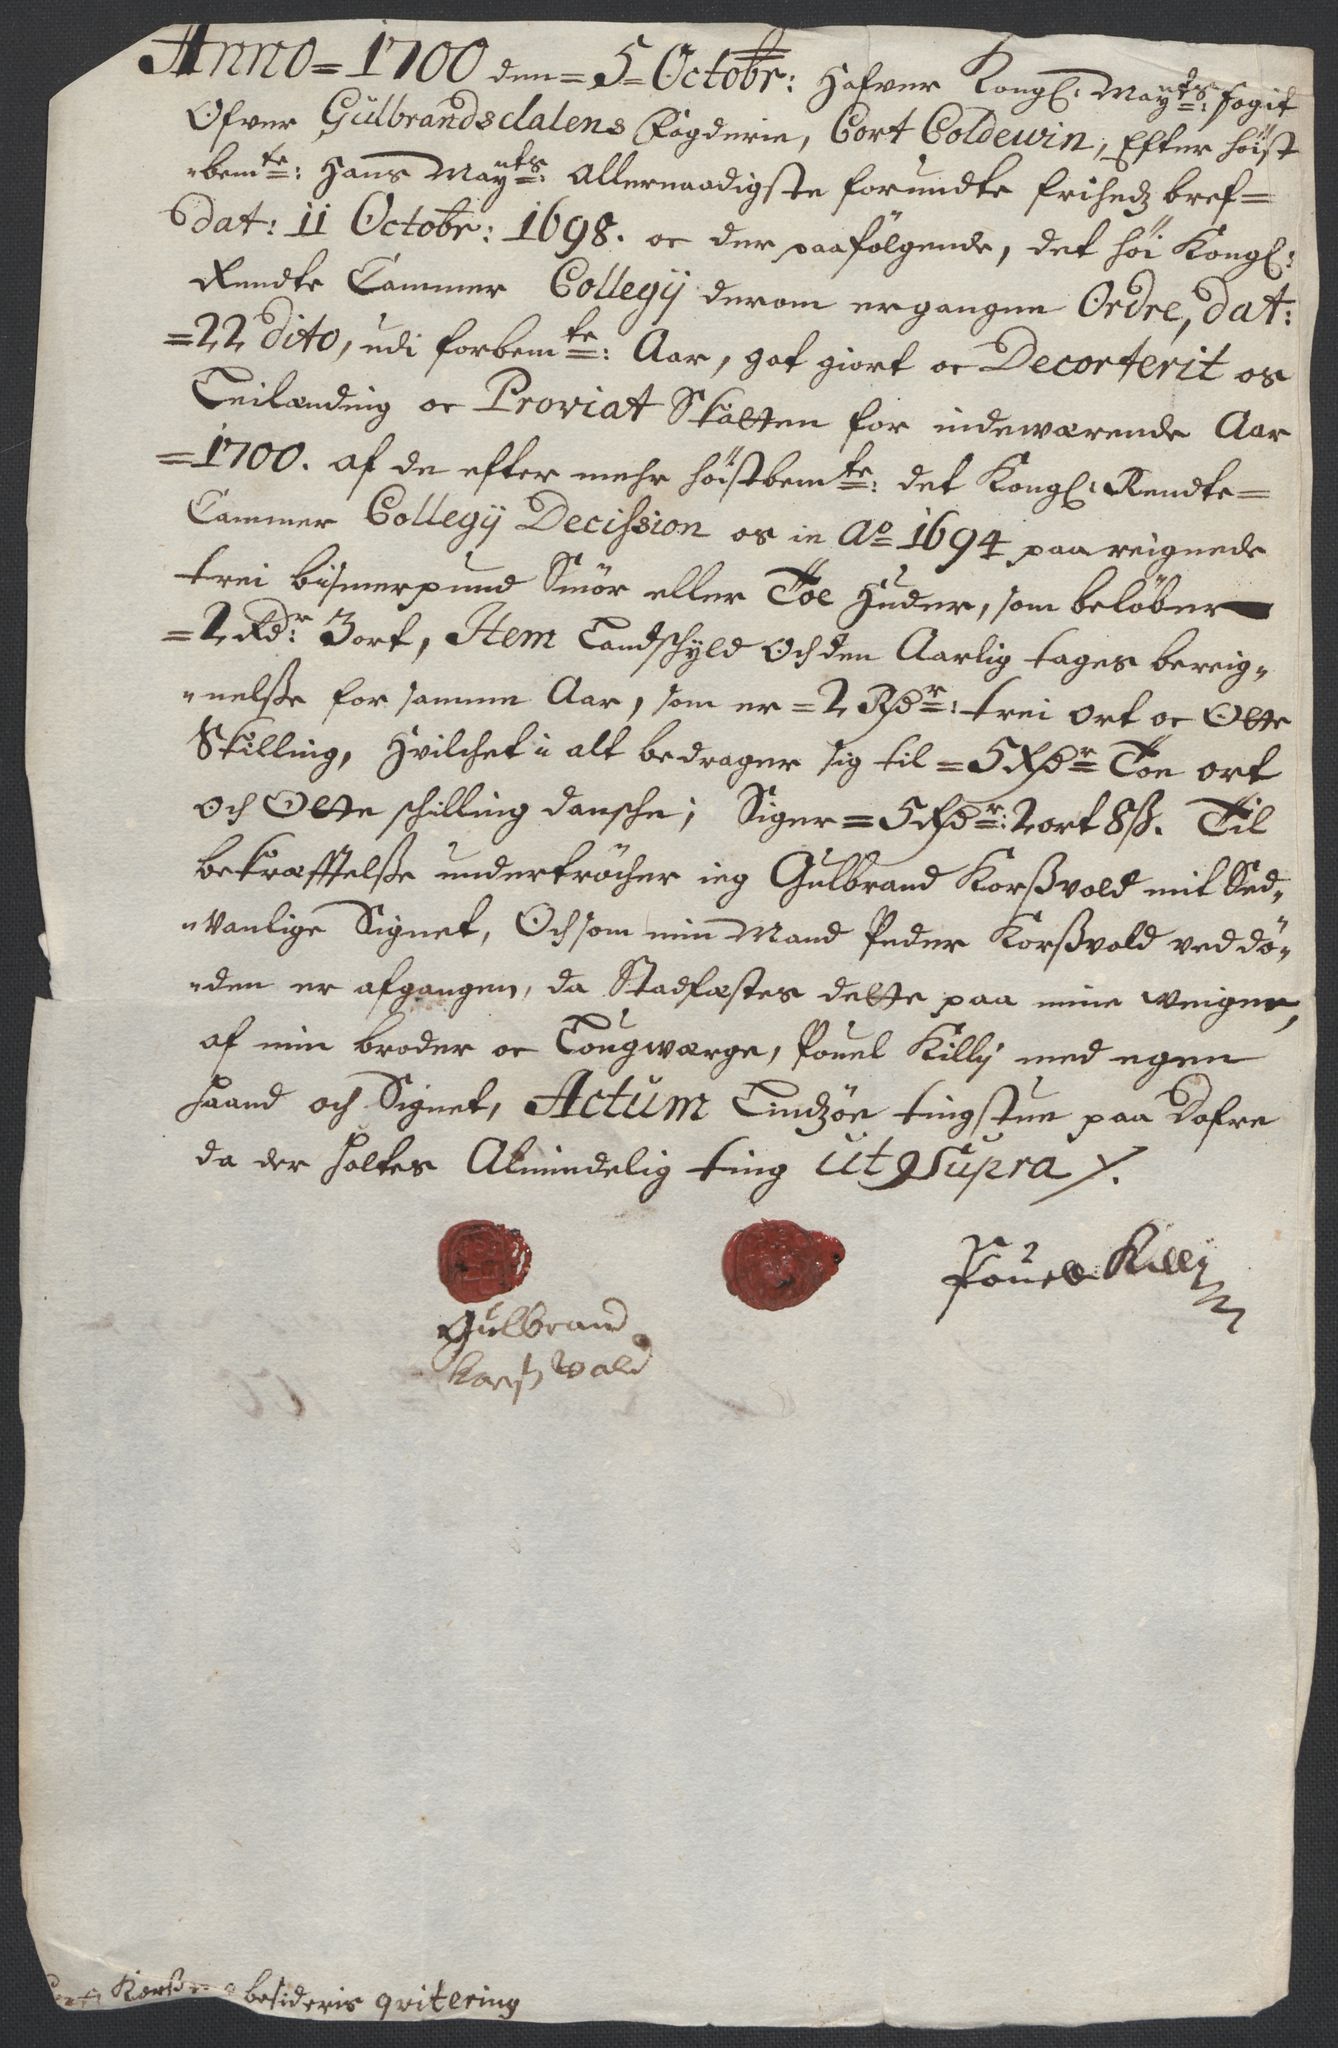 Anno = 1700 den = 5 = Octobr: Hafver Kongl: Mayts: fogit
Ofver Gülbrandsdalens Fogderie, Cort Coldewin, Efter höist
bemte: Hans Mayts: Allernaadigste forundte friheds bref =
dat: 11 Octobr: 1698. oc der paafölgende, det höi Kongl:
Rendte Cammer Collegÿ derom ergangne Ordre, dat:
= 22 dito, udi forbemte: Aar, got giort oc Decorterit os
Leilænding oc Proviat Skatten for indewærende Aar
= 1700. af de efter mehr höistbemte: det Kongl: Rendte =
Cammer Collegÿ Decission os in Ao 1694 paareignede
trei bismerpund Smör eller Toe Huder, som belöber
= 2 Rdr 3 ort, Item Landschyld Och den Aarlig tages bereig-
nelsße for samme Aar, som er = 2 Rdr: trei ort oc Otte
Skilling, Hvilchet i alt bedrager sig til = 5 Rdr Toe ort
Och Otte schilling dansche; Siger = 5 Rdr: 2 ort 8 ß. Til
bekræfftelße undertröcher ieg Gulbrand Korßvold mit Sed-
vanlige Signet, Och som min Mand Peder Korßvold ved dö-
den er afgangen, da Stadfæstes dette paa mine weigne,
af min broder oc Lougwærge, Pouel Killÿ med egen
Haand och Signet, Actum Lindsöe tingstue paa Dofre
da der Holtes Almindelig ting ut Supra /.
Pouel Killÿ
Gulbrand
Korßvold
besideris qvitering